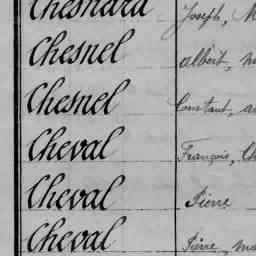 Chesnard Joseph, M
Chesnel Albert, m
Chesnel Constant, a
Cheval François, Ch
Cheval Pierre
Cheval Pierre, ma